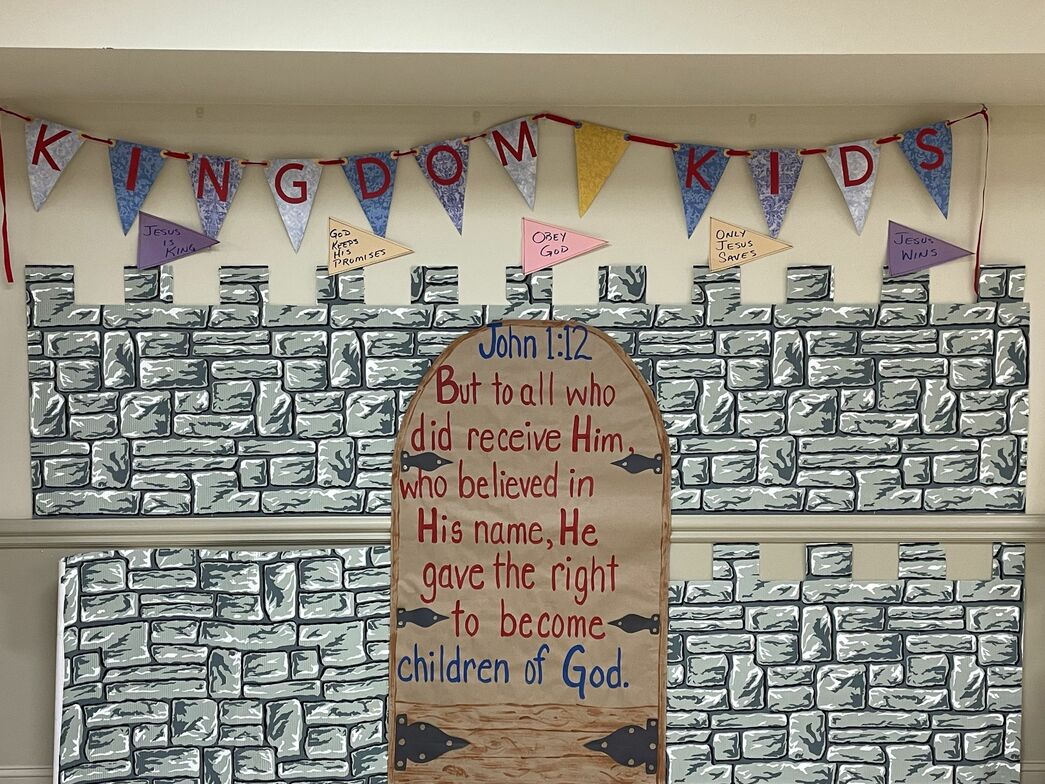 KINGDOM KIDS
JESUS
IS
KING
GOD
KEEPS
HIS
PROMISES
OBEY
GOD
ONLY
JESUS
SAVES
JESUS
WINS
John 1:12
But to all who
did receive Him,
who believed in
His name, He
gave the right
to become
children of God.